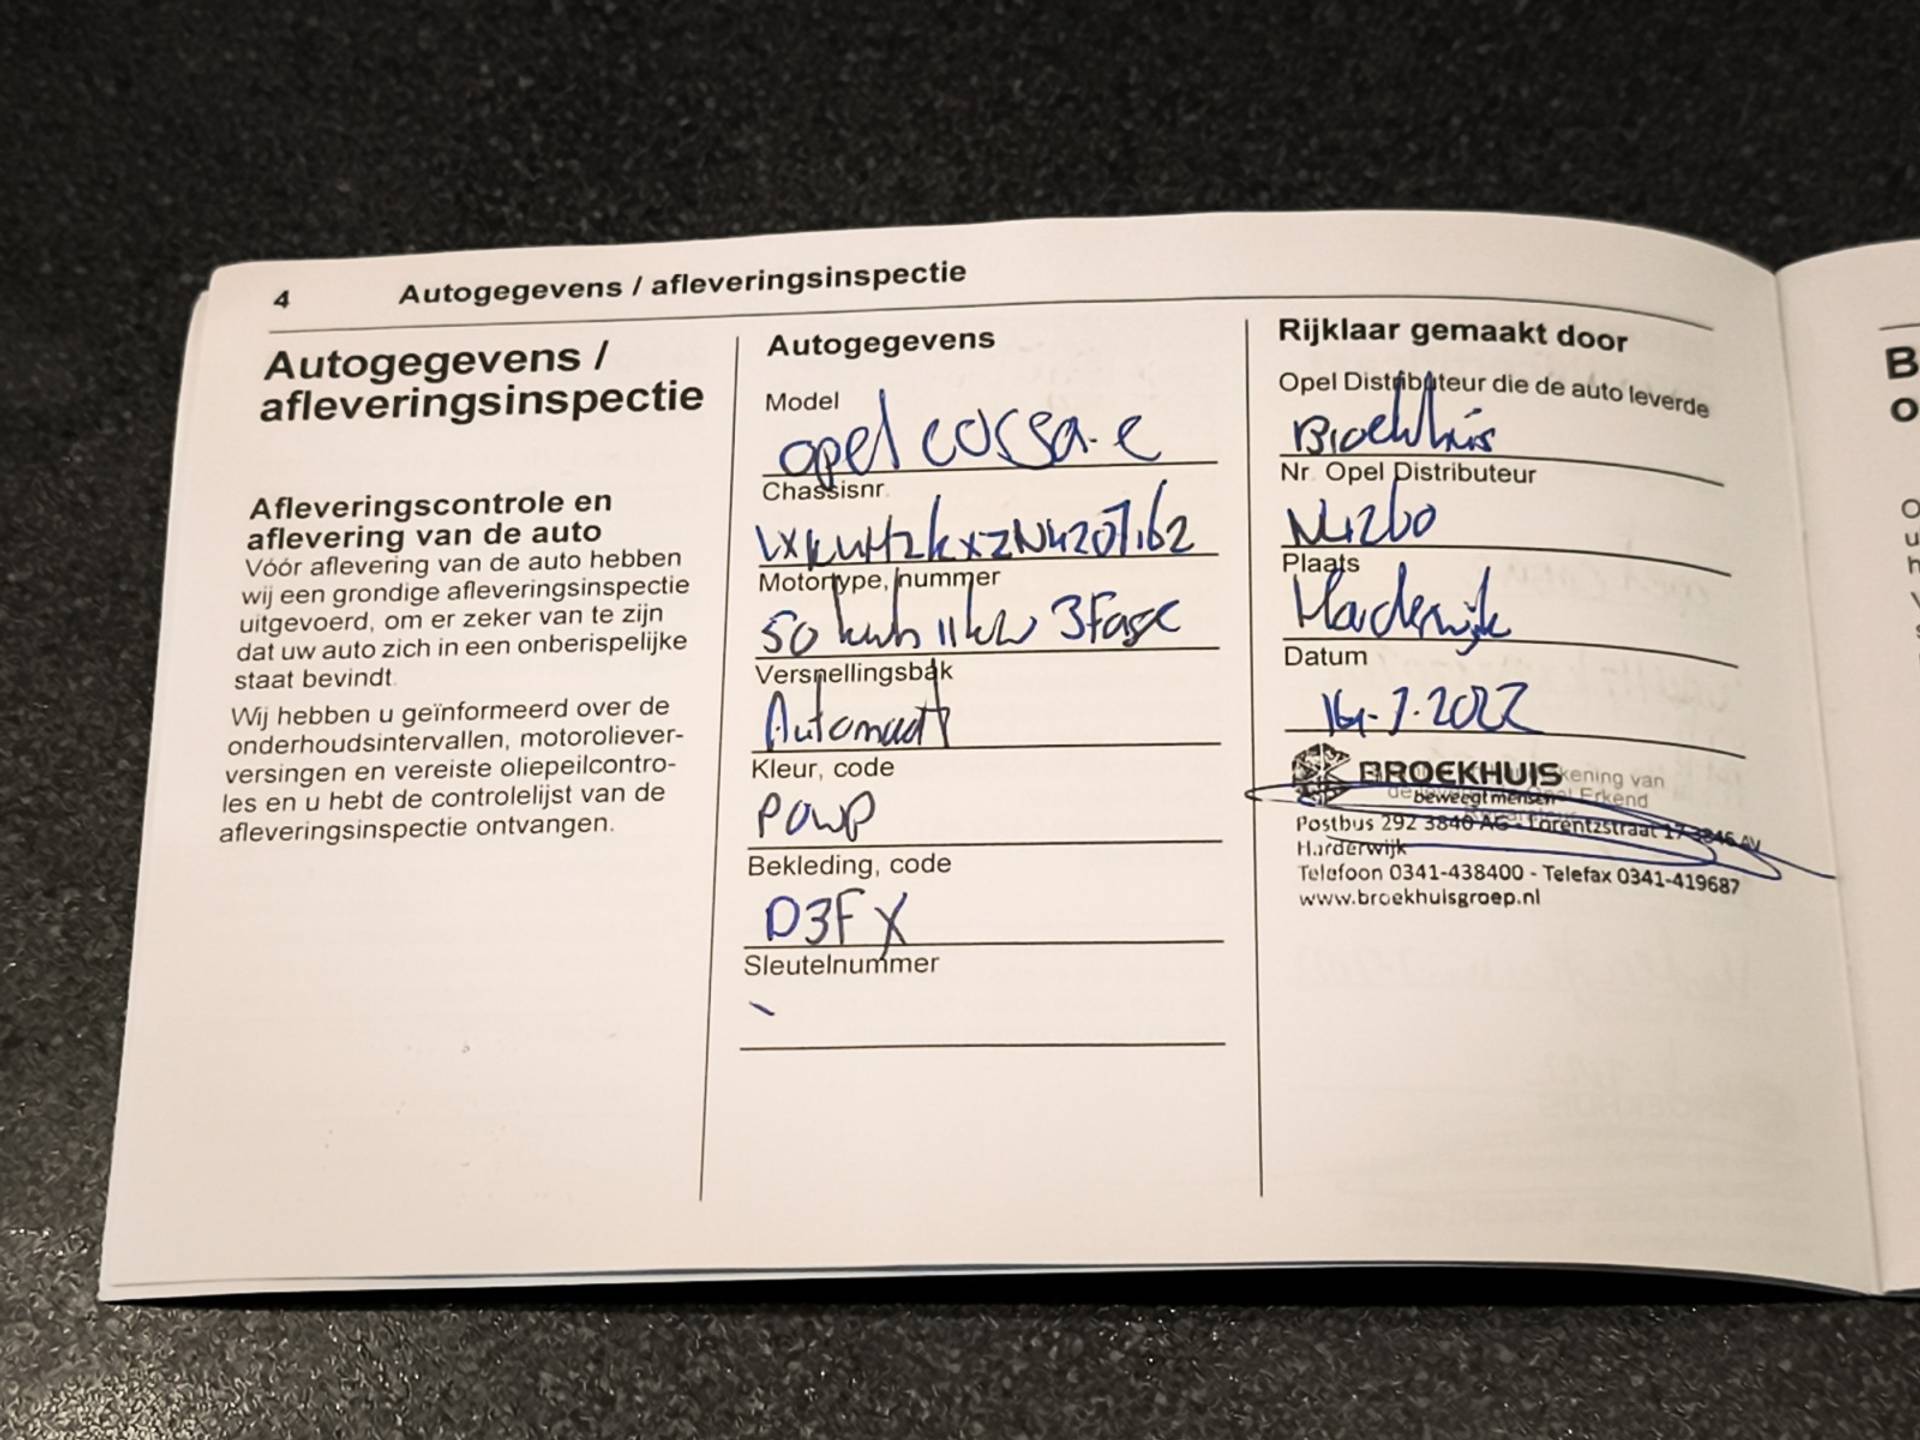 4 Autogegevens / afleveringsinspectie
Autogegevens /
afleveringsinspectie
Afleveringscontrole en
aflevering van de auto
Vóór aflevering van de auto hebben
wij een grondige afleveringsinspectie
uitgevoerd, om er zeker van te zijn
dat uw auto zich in een onberispelijke
staat bevindt.
Wij hebben u geïnformeerd over de
onderhoudsintervallen, motoroliever-
versingen en vereiste oliepeilcontro-
les en u hebt de controlelijst van de
afleveringsinspectie ontvangen.
Autogegevens
Model
Opel corsa-e
Chassisnr.
Motortype, nummer
50 kwh 11kw 3Fase
Versnellingsbak
Automaat
Kleur, code
POWP
Bekleding, code
D3FX
Sleutelnummer
Rijklaar gemaakt door
Opel Distributeur die de auto leverde
Broekhuis
Nr. Opel Distributeur
Plaats
Harderwijk
Datum
BROEKHUIS kening van
beweegt mensen Erkend
Postbus 292 3840 AG - Lorentzstraat 17 3846 AV
Harderwijk
Telefoon 0341-438400 - Telefax 0341-419687
www.broekhuisgroep.nl